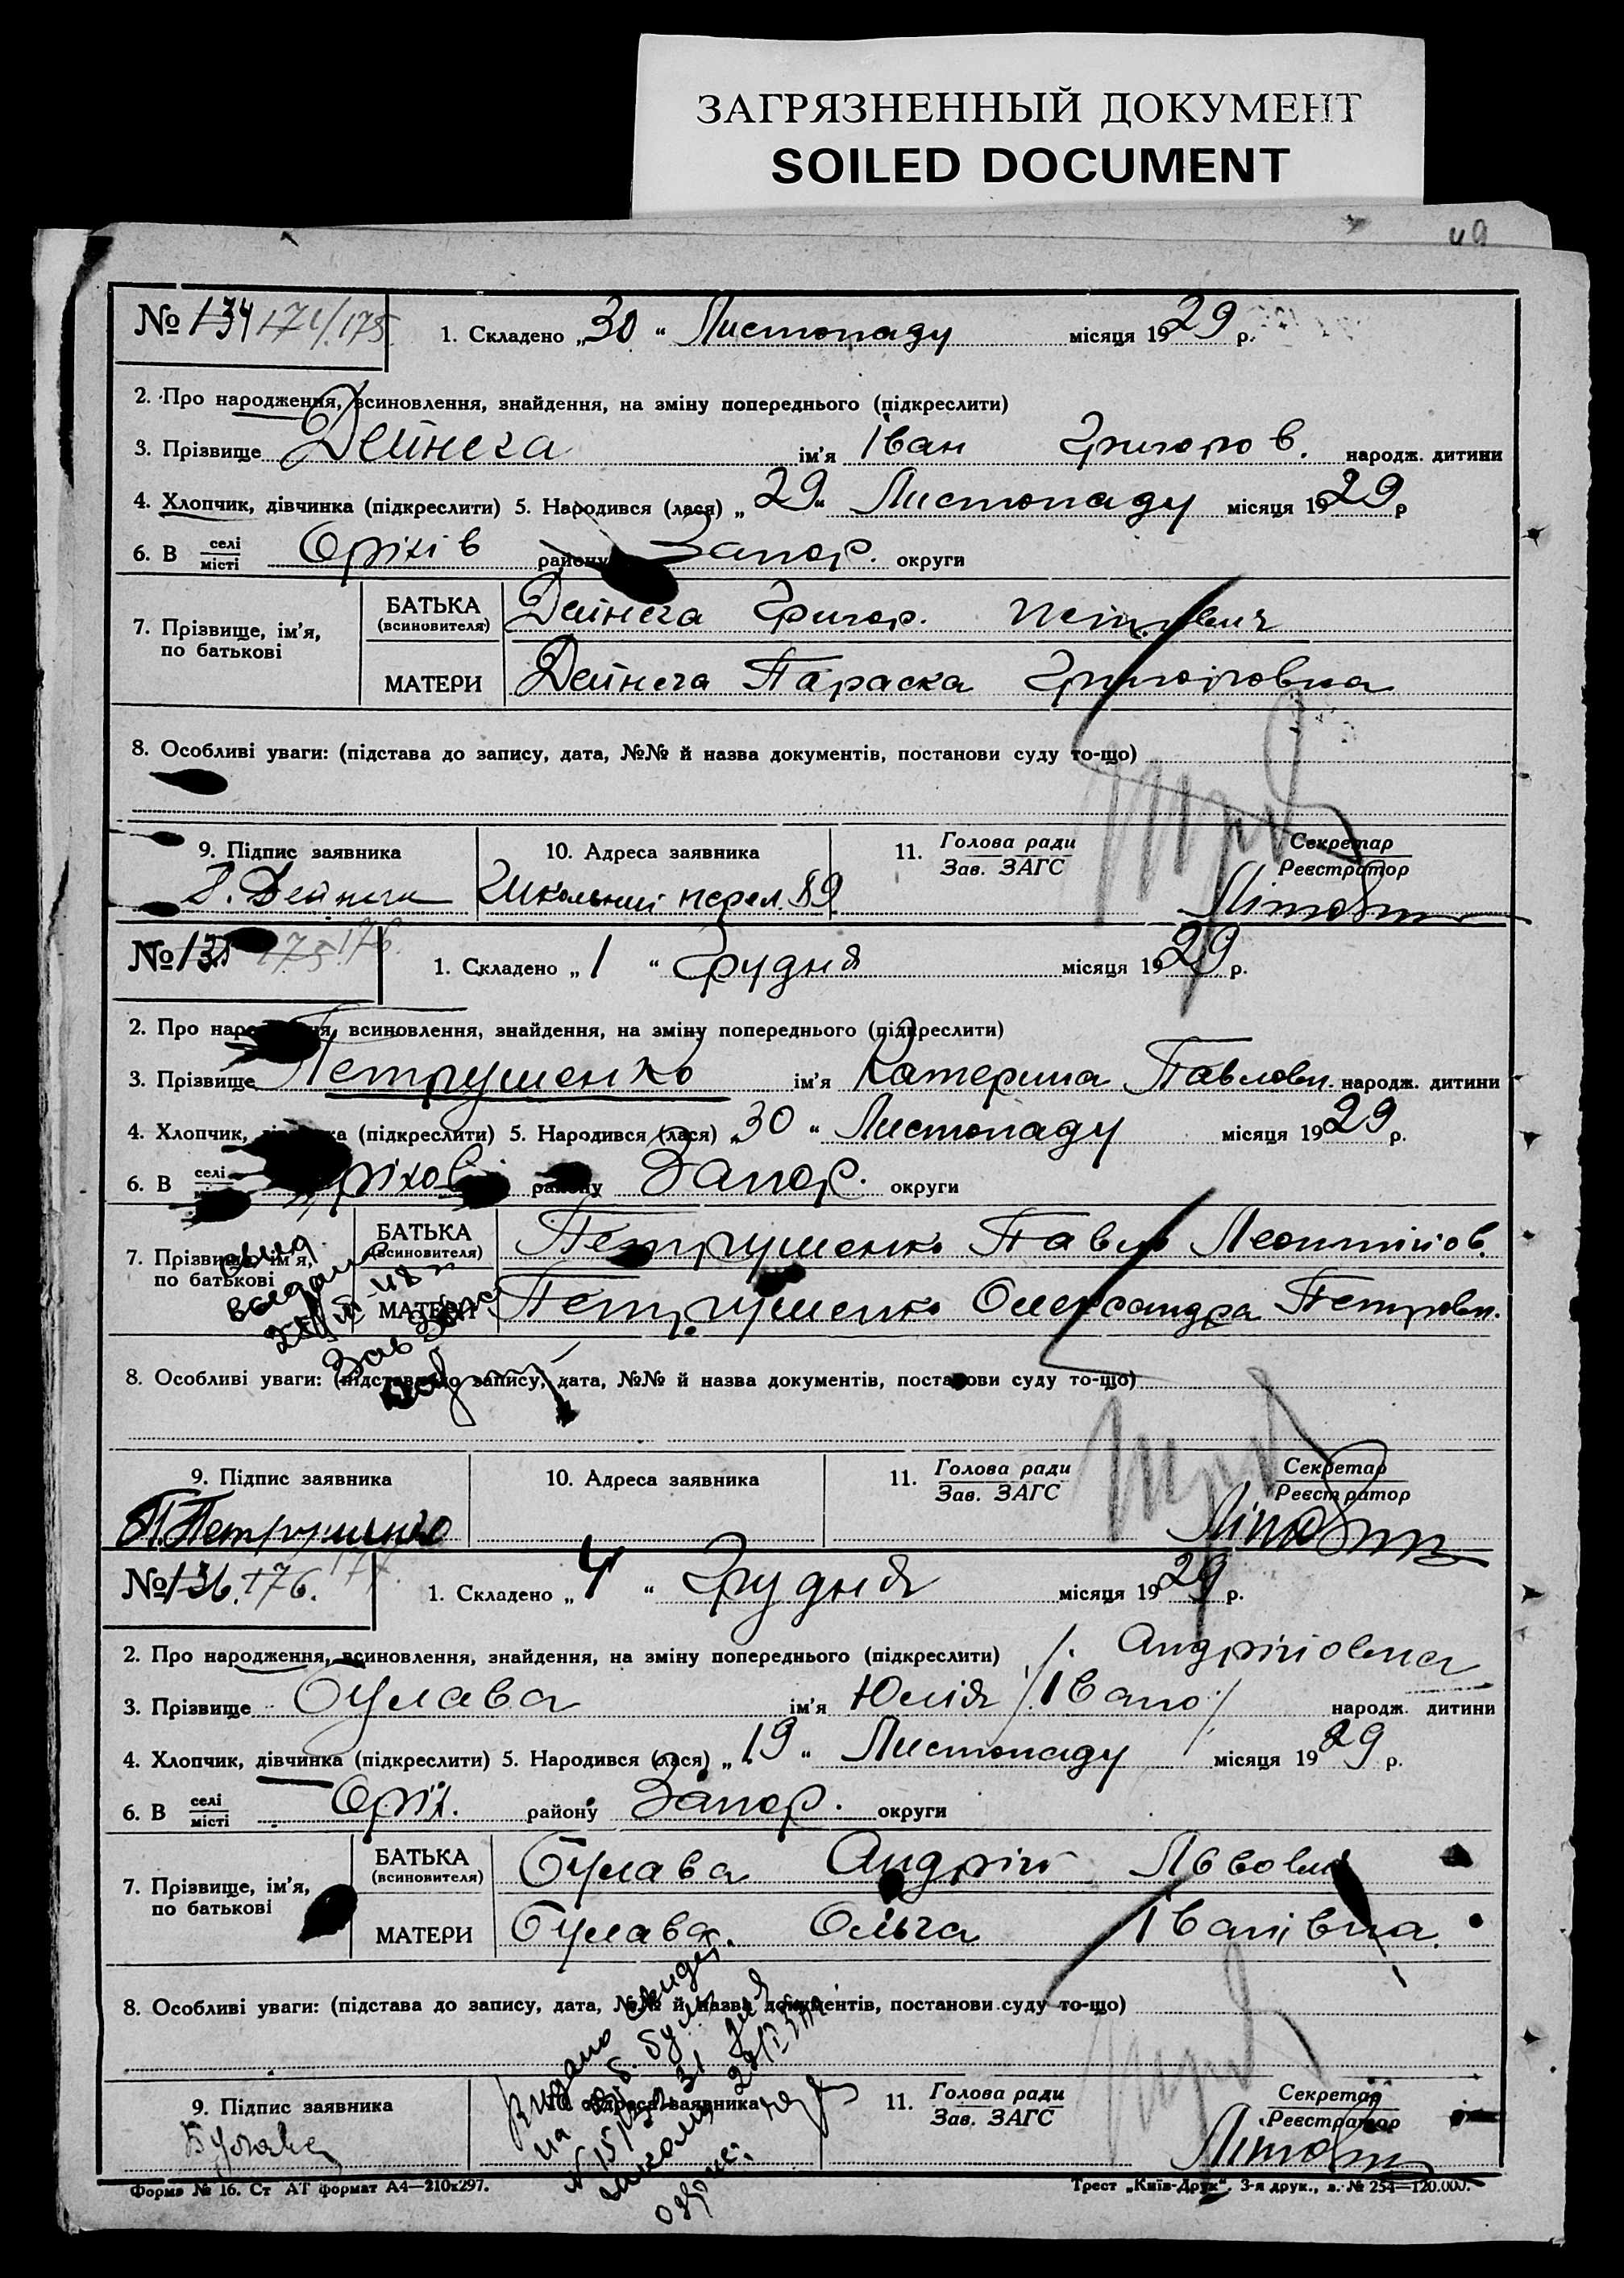 ЗАГРЯЗНЕННЫЙ ДОКУМЕНТ
SOILED DOCUMENT
№ 134 175.
1. Складено „30“ Листопаду місяця 1929 р.
2. Про народження, всиновлення, знайдення, на зміну попереднього (підкреслити)
3. Прізвище Дейнега ім'я Іван Григоров. народж. дитини
4. Хлопчик, дівчинка (підкреслити) 5. Народився (лася) „29“ Листопаду місяця 1929 р
6. В селі/місті Оріхів району Запор. округи
7. Прізвище, ім'я, по батькові
БАТЬКА (всиновителя) Дейнега Григор. Петрович
МАТЕРИ Дейнега Параска Григоровна
8. Особливі уваги: (підстава до запису, дата, №№ й назва документів, постанови суду то-що)
9. Підпис заявника 10. Адреса заявника 11. Голова ради/Зав. ЗАГС Секретар/Реєстратор
Дейнега Школьний
№ 135 175 176.
1. Складено „1“ Грудня місяця 1929 р.
2. Про всиновлення, знайдення, на зміну попереднього (підкреслити)
3. Прізвище Петрушенко ім'я Катерина Павловн. народж. дитини
4. Хлопчик, (підкреслити) 5. Народився (лася) „30“ Листопаду місяця 1929 р.
6. В селі Оріхов району Запор. округи
7. Прізвище, ім'я, по батькові
БАТЬКА (всиновителя) Петрушенко Павло Леонтійов.
МАТЕРИ Петрушенко Олександра Петровн.
8. Особливі уваги: (підстава до запису, дата, №№ й назва документів, постанови суду то-що)
9. Підпис заявника 10. Адреса заявника 11. Голова ради/Зав. ЗАГС Секретар/Реєстратор
П. Петрушенко
№ 136. 176. 177
1. Складено „4“ Грудня місяця 1929 р.
2. Про народження, всиновлення, знайдення, на зміну попереднього (підкреслити) Андрійовна
3. Прізвище Булава ім'я Юлія /Івано/ народж. дитини
4. Хлопчик, дівчинка (підкреслити) 5. Народився (лася) „19“ Листопаду місяця 1929 р.
6. В селі/місті Оріх. району Запор. округи
7. Прізвище, ім'я, по батькові
БАТЬКА (всиновителя) Булава Андрій Львович
МАТЕРИ Булава Ольга Іванівна.
8. Особливі уваги: (підстава до запису, дата, №№ й назва документів, постанови суду то-що)
9. Підпис заявника 10. Адреса заявника 11. Голова ради/Зав. ЗАГС Секретар/Реєстратор
Булава
Форма № 16. Ст АТ формат А4—210х297. Трест „Київ-Друк“. 3-я друк., з. № 254—120.000.